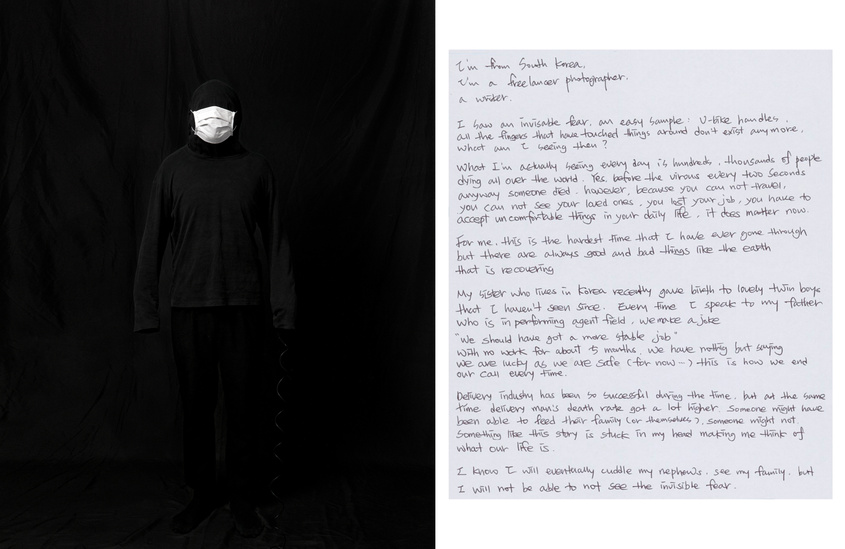 I'm from South Korea,
I'm a freelancer photographer.
a worker.
I saw an invisable fear, an easy sample: U-bike handles,
all the fingers that have touched things around don't exist anymore,
what am I seeing then?
What I'm actually seeing every day is hundreds, thousands of people
dying all over the world. Yes, before the virous every two seconds
anyway someone died. however, because you can not travel,
you can not see your loved ones, you lost your job, you have to
accept uncomfortable things in your daily life, it does matter now.
For me, this is the hardest time that I have ever gone through
but there are always good and bad things like the earth
that is recovering
My sister who lives in Korea recently gave birth to lovely twin boys
that I haven't seen since. Every time I speak to my father
who is in performing agent field, we make a joke
"We should have got a more stable job"
with no work for about 5 months, we have nothing but saying
we are lucky as we are safe (for now~) this is how we end
our call every time.
Delivery industry has been so successful during the time, but at the same
time delivery man's death rate got a lot higher. Someone might have
been able to feed their family (or themselves), someone might not.
Something like this story is stuck in my head making me think of
what our life is.
I know I will eventually cuddle my nephews, see my family, but
I will not be able to not see the invisible fear.